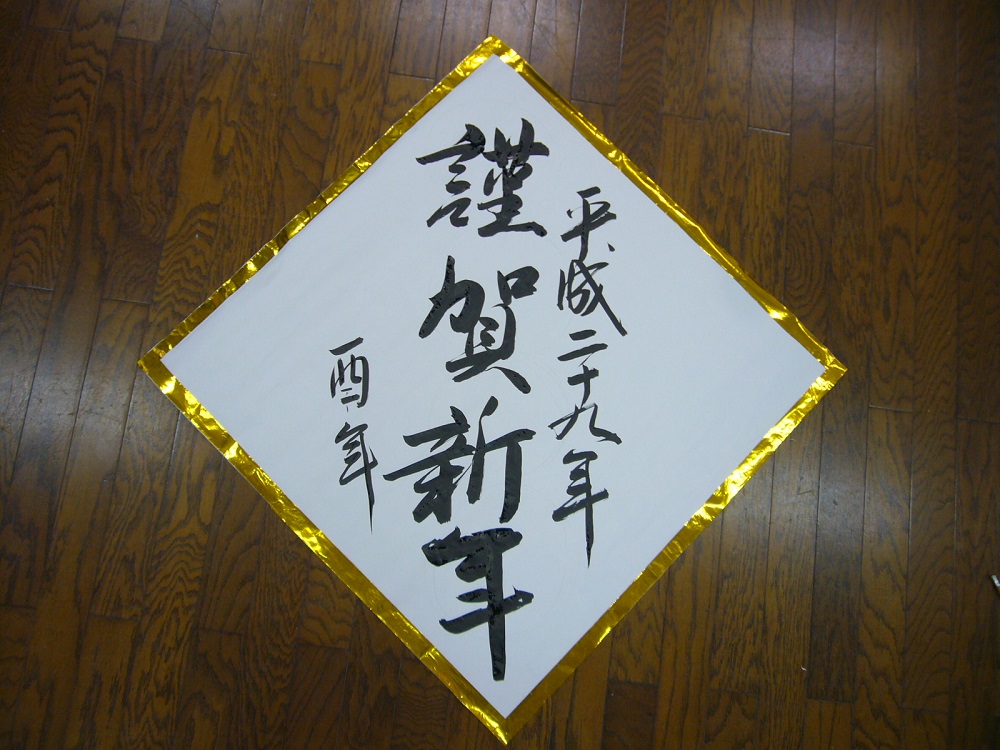 平成二十九年
謹賀新年
酉年